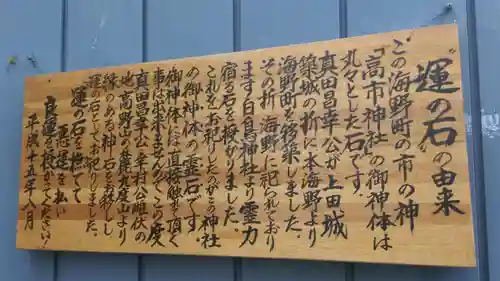 ”運の石”の由来
この海野町の市の神
「高市神社」の御神体は
丸々とした石です。
真田昌幸公が上田城
築城の折に本海野より
海野町を移築しました。
その折、海野に祀られており
ます白鳥神社より霊力
宿る石を授かりました。
これをお祀りしたのがこの神社
の御神体の霊石です。
御神体には直接触れて頂く
事は出来ませんのでこの度
真田昌幸公、幸村公雌伏の
地高野山の麓九度山より
縁のある神の石をお移しし
運の石としてお祀りしました。
運の石を撫でて
悪運を払い
良運を授かってください!
平成十五年八月